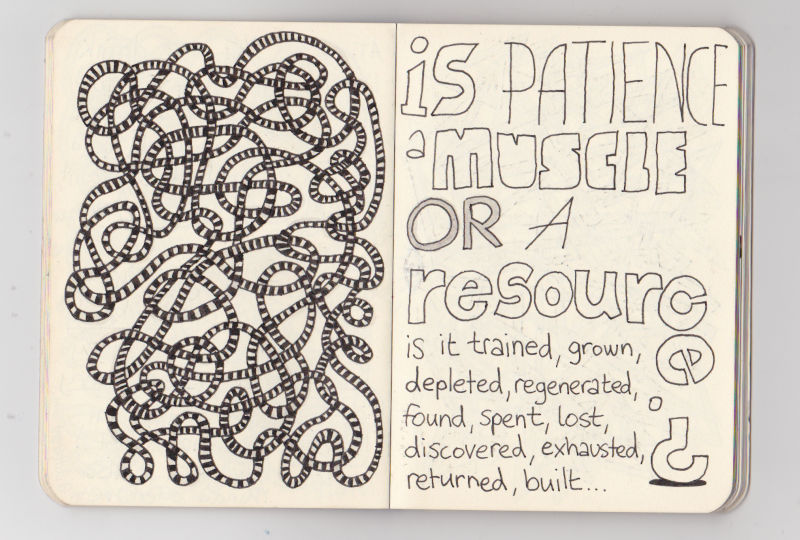 is PATIENCE
a MUSCLE
OR A
resource?
is it trained, grown,
depleted, regenerated,
found, spent, lost,
discovered, exhausted,
returned, built...